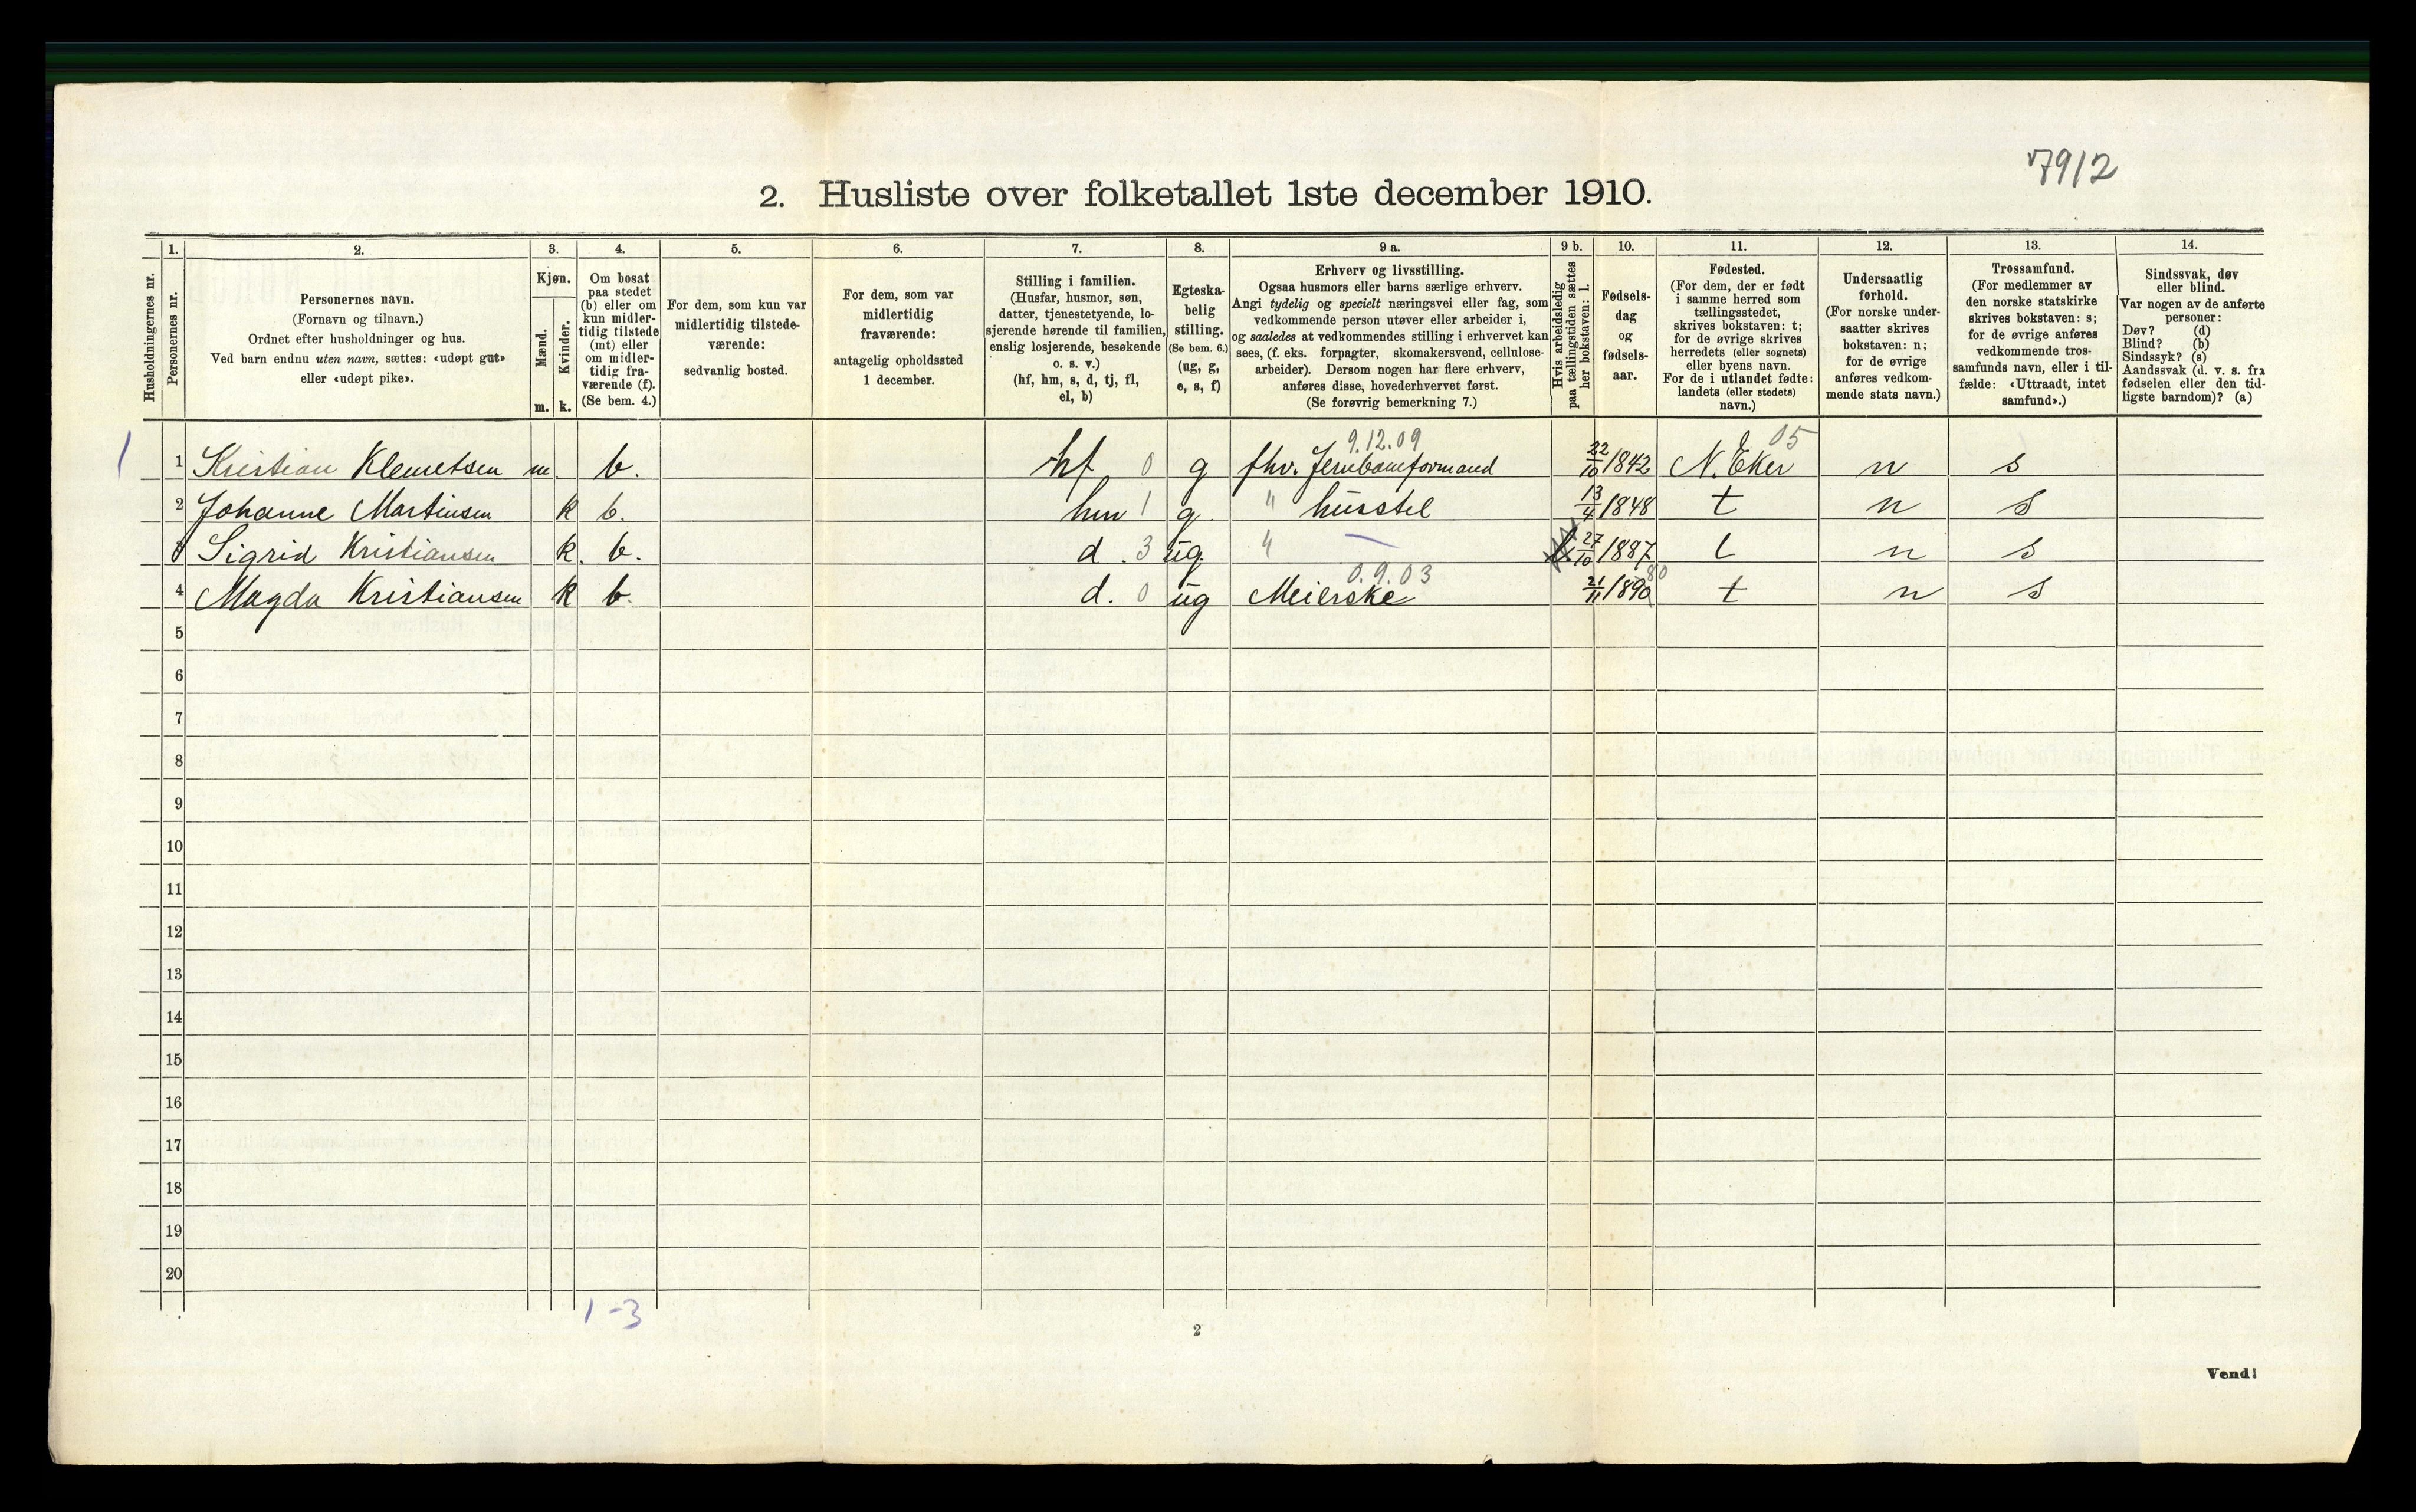 7912
2. Husliste over folketallet 1ste december 1910.
Husholdningernes nr.
1.
Personernes nr.
2.
Personernes navn.
(Fornavn og tilnavn.)
Ordnet efter husholdninger og hus.
Ved barn endnu uten navn, sættes: «udøpt gut»
eller «udøpt pike».
3.
Kjøn.
Mænd.
Kvinder.
m. k.
4.
Om bosat
paa stedet
(b) eller om
kun midler-
tidig tilstede
(mt) eller
om midler-
tidig fra-
værende (f).
(Se bem. 4.)
5.
For dem, som kun var
midlertidig tilstede-
værende:
sedvanlig bosted.
6.
For dem, som var
midlertidig
fraværende:
antagelig opholdssted
1 december.
7.
Stilling i familien.
(Husfar, husmor, søn,
datter, tjenestetyende, lo-
sjerende hørende til familien,
enslig losjerende, besøkende
o. s. v.)
(hf, hm, s, d, tj, fl,
el, b)
8.
Egteska-
belig
stilling.
(Se bem. 6.)
(ug, g,
e, s, f)
9 a.
Erhverv og livsstilling.
Ogsaa husmors eller barns særlige erhverv.
Angi tydelig og specielt næringsvei eller fag, som
vedkommende person utøver eller arbeider i,
og saaledes at vedkommendes stilling i erhvervet kan
sees, (f. eks. forpagter, skomakersvend, cellulose-
arbeider). Dersom nogen har flere erhverv,
anføres disse, hovederhvervet først.
(Se forøvrig bemerkning 7.)
9 b.
Hvis arbeidsledig
paa tællingstiden sættes
her bokstaven: l.
10.
Fødsels-
dag
og
fødsels-
aar.
11.
Fødested.
(For dem, der er født
i samme herred som
tællingsstedet,
skrives bokstaven: t;
for de øvrige skrives
herredets (eller sognets)
eller byens navn.
For de i utlandet fødte:
landets (eller stedets)
navn.)
12.
Undersaatlig
forhold.
(For norske under-
saatter skrives
bokstaven: n;
for de øvrige
anføres vedkom-
mende stats navn.)
13.
Trossamfund.
(For medlemmer av
den norske statskirke
skrives bokstaven: s;
for de øvrige anføres
vedkommende tros-
samfunds navn, eller i til-
fælde: «Uttraadt, intet
samfund».)
14.
Sindssvak, døv
eller blind.
Var nogen av de anførte
personer:
Døv? (d)
Blind? (b)
Sindssyk? (s)
Aandssvak (d. v. s. fra
fødselen eller den tid-
ligste barndom)? (a)
9.12.09 05
1 1 Kristian Klemetsen m. b. hf 0 g fhv. Jernbaneformand 22/10 1842 N. Eker n s
2 Johanne Martinsen k b. hm 1 g. " husstel 13/4 1848 t n s
3 Sigrid Kristiansen k. b. d. 3 ug. " — 27/10 1887 t n s
0.9.03 80
4 Magda Kristiansen k b. d. 0 ug Meierske 21/11 1890 t n s
5
6
7
8
9
10
11
12
13
14
15
16
17
18
19
20
1-3
2
Vend!